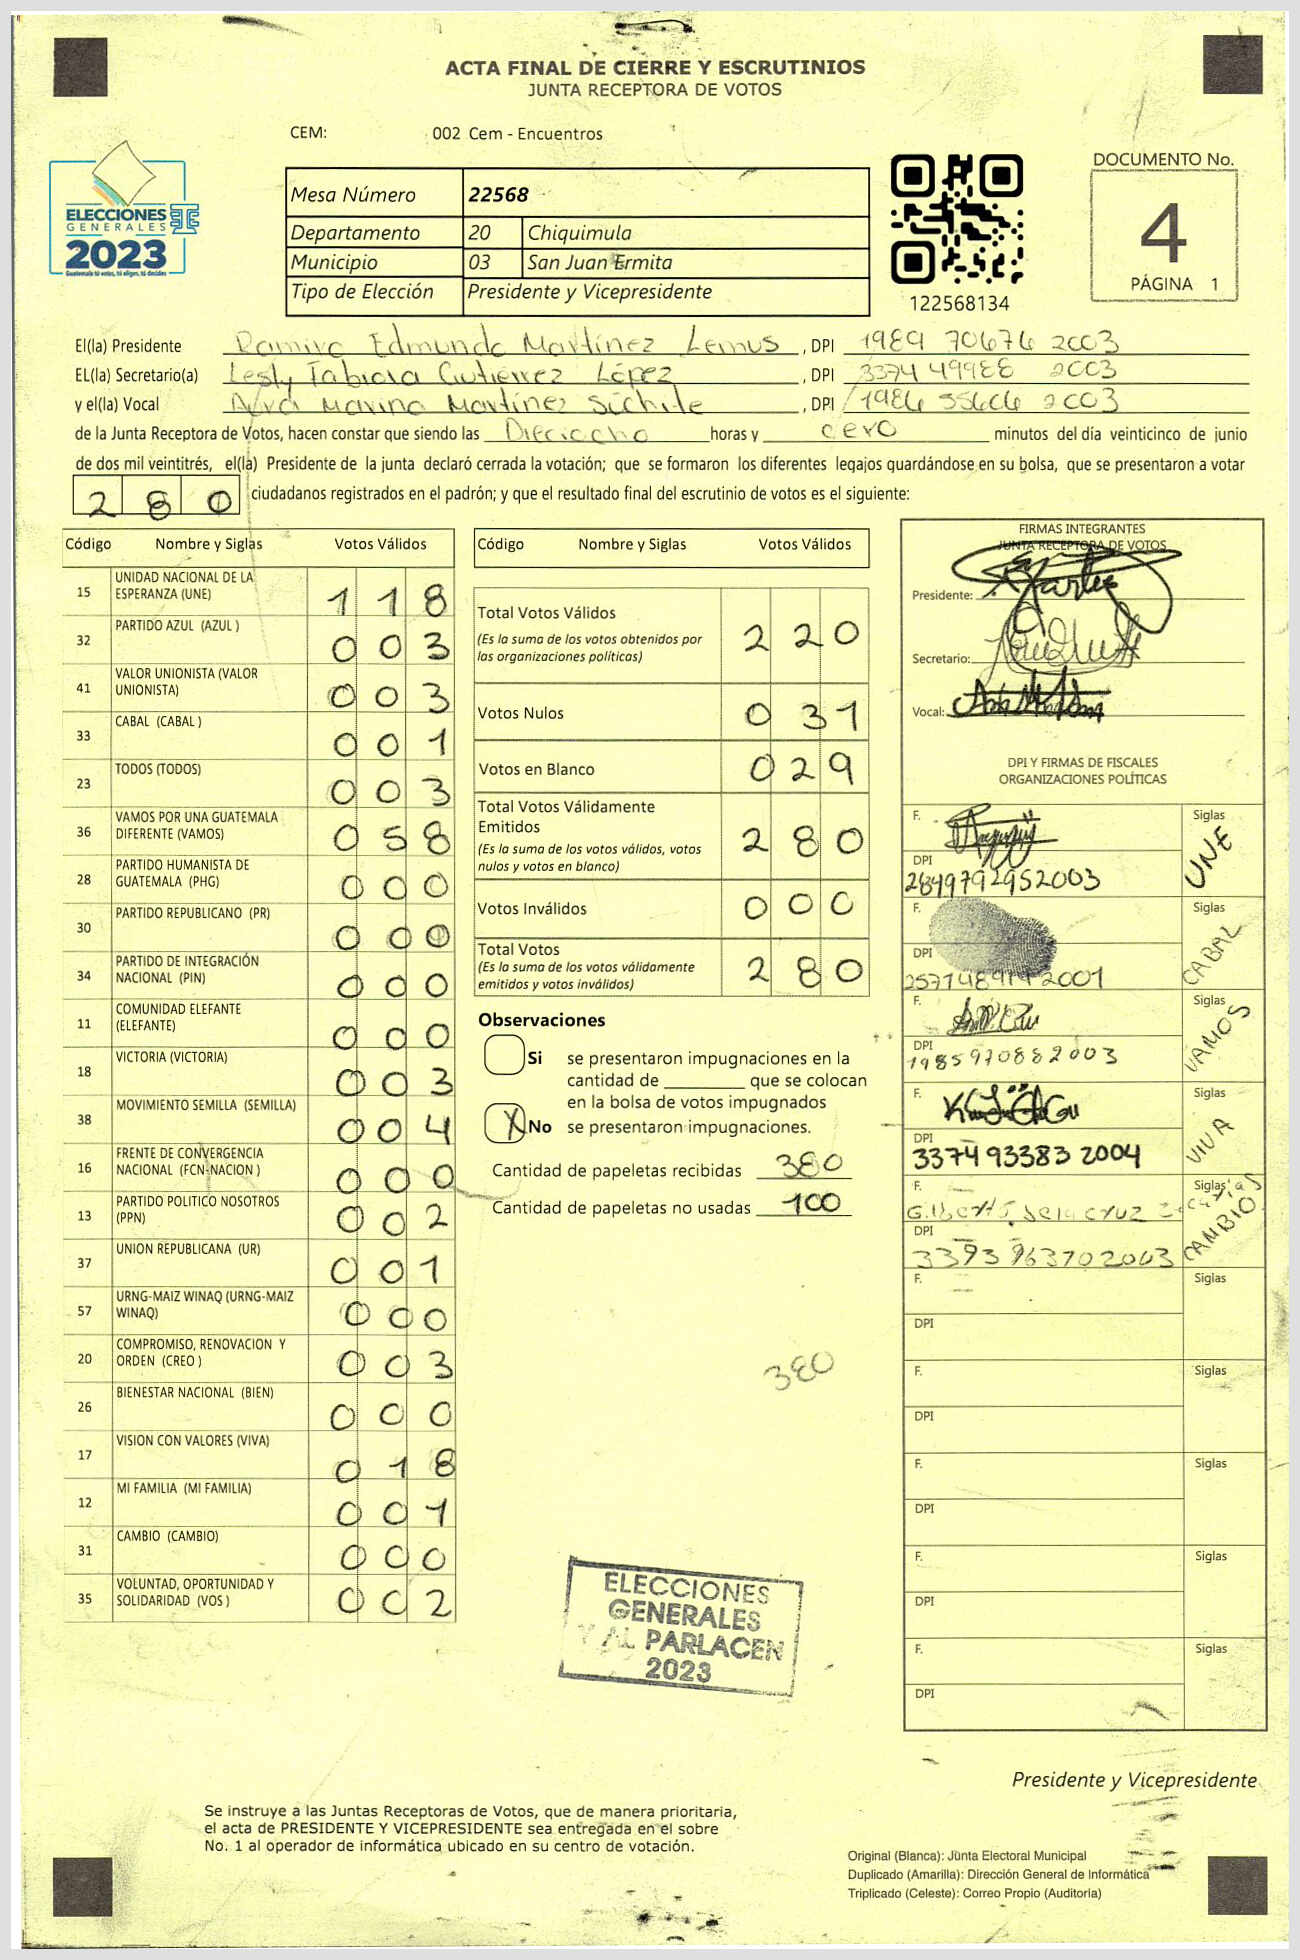 ACTA FINAL DE CIERRE Y ESCRUTINIOS
JUNTA RECEPTORA DE VOTOS
CEM: 002 Cem - Encuentros
ELECCIONES
GENERALES
2023
Guatemala tú votas, tú eliges, tú decides
Mesa Número 22568
Departamento 20 Chiquimula
Municipio 03 San Juan Ermita
Tipo de Elección Presidente y Vicepresidente
122568134
DOCUMENTO No.
4
PÁGINA 1
El(la) Presidente Ramiro Edmundo Martínez Lemus , DPI 1989 70676 2003
EL(la) Secretario(a) Lesly Fabiola Gutiérrez López , DPI 3374 49988 2003
y el(la) Vocal Marina Martínez Súchite , DPI 1986 55606 2003
de la Junta Receptora de Votos, hacen constar que siendo las Dieciocho horas y cero minutos del día veinticinco de junio
de dos mil veintitrés, el(la) Presidente de la junta declaró cerrada la votación; que se formaron los diferentes legajos guardándose en su bolsa, que se presentaron a votar
280 ciudadanos registrados en el padrón; y que el resultado final del escrutinio de votos es el siguiente:
Código Nombre y Siglas Votos Válidos
15 UNIDAD NACIONAL DE LA ESPERANZA (UNE) 118
32 PARTIDO AZUL (AZUL ) 003
41 VALOR UNIONISTA (VALOR UNIONISTA) 003
33 CABAL (CABAL ) 001
23 TODOS (TODOS) 003
36 VAMOS POR UNA GUATEMALA DIFERENTE (VAMOS) 058
28 PARTIDO HUMANISTA DE GUATEMALA (PHG) 000
30 PARTIDO REPUBLICANO (PR) 000
34 PARTIDO DE INTEGRACIÓN NACIONAL (PIN) 000
11 COMUNIDAD ELEFANTE (ELEFANTE) 000
18 VICTORIA (VICTORIA) 003
38 MOVIMIENTO SEMILLA (SEMILLA) 004
16 FRENTE DE CONVERGENCIA NACIONAL (FCN-NACION ) 000
13 PARTIDO POLITICO NOSOTROS (PPN) 002
37 UNION REPUBLICANA (UR) 001
57 URNG-MAIZ WINAQ (URNG-MAIZ WINAQ) 000
20 COMPROMISO, RENOVACION Y ORDEN (CREO ) 003
26 BIENESTAR NACIONAL (BIEN) 000
17 VISION CON VALORES (VIVA) 018
12 MI FAMILIA (MI FAMILIA) 001
31 CAMBIO (CAMBIO) 000
35 VOLUNTAD, OPORTUNIDAD Y SOLIDARIDAD (VOS ) 002
Código Nombre y Siglas Votos Válidos
Total Votos Válidos 220
(Es la suma de los votos obtenidos por
las organizaciones políticas)
Votos Nulos 031
Votos en Blanco 029
Total Votos Válidamente
Emitidos 280
(Es la suma de los votos válidos, votos
nulos y votos en blanco)
Votos Inválidos 000
Total Votos 280
(Es la suma de los votos válidamente
emitidos y votos inválidos)
Observaciones
Si se presentaron impugnaciones en la
cantidad de que se colocan
en la bolsa de votos impugnados
X No se presentaron impugnaciones.
Cantidad de papeletas recibidas 380
Cantidad de papeletas no usadas 100
380
ELECCIONES
GENERALES
Y AL PARLACEN
2023
FIRMAS INTEGRANTES
JUNTA RECEPTORA DE VOTOS
Presidente:
Secretario:
Vocal:
DPI Y FIRMAS DE FISCALES
ORGANIZACIONES POLÍTICAS
F. Siglas UNE
DPI 2849792952003
F. Siglas CABAL
DPI
F. Siglas VAMOS
DPI 1985970882003
F. Siglas VIVA
DPI 3374 93383 2004
F. Gilberto de la cruz Siglas CAMBIO
DPI 3393 963702003
F. Siglas
DPI
F. Siglas
DPI
F. Siglas
DPI
F. Siglas
DPI
F. Siglas
DPI
Presidente y Vicepresidente
Se instruye a las Juntas Receptoras de Votos, que de manera prioritaria,
el acta de PRESIDENTE Y VICEPRESIDENTE sea entregada en el sobre
No. 1 al operador de informática ubicado en su centro de votación.
Original (Blanca): Junta Electoral Municipal
Duplicado (Amarilla): Dirección General de Informática
Triplicado (Celeste): Correo Propio (Auditoría)